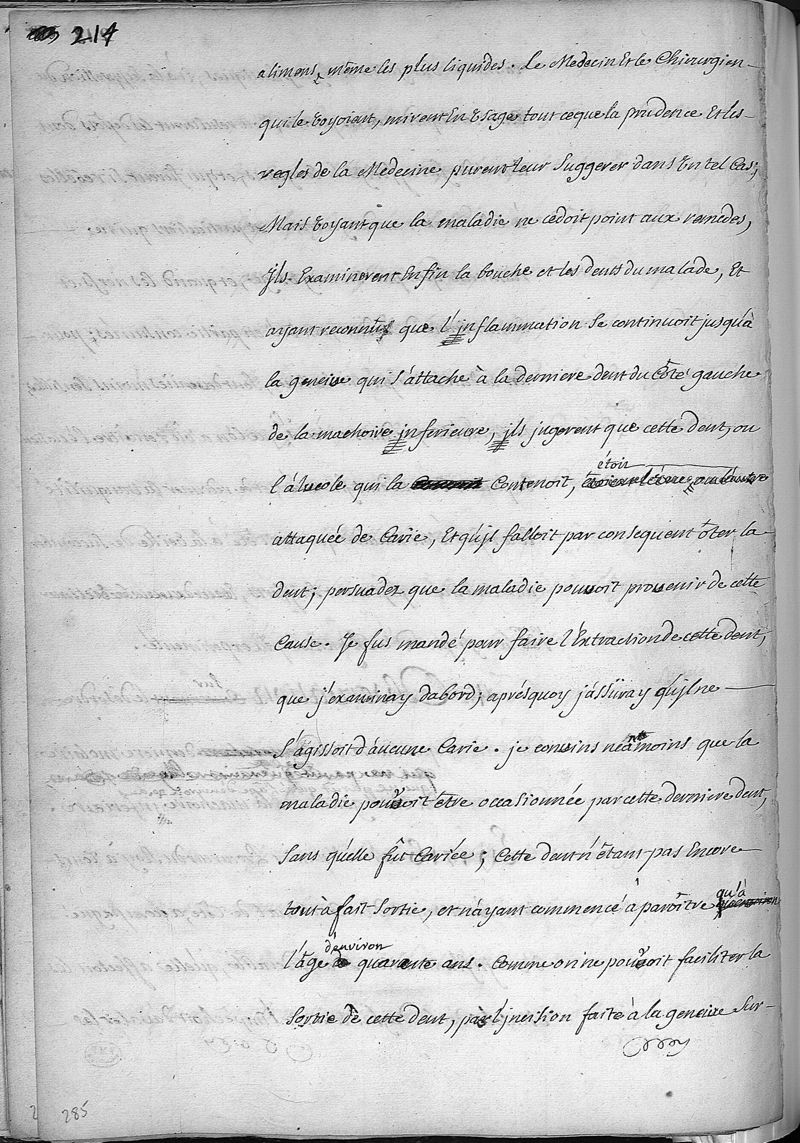 214
alimens, même les plus liquides. Le Medecin Et le Chirurgien
qui le voyoient, mirent En Usage tout ce que la prudence Et les
regles de la Medecine purent leur Suggerer dans Un tel Cas;
Mais voyant que la maladie ne cedoit point aux remedes,
Ils Examinerent Enfin la bouche et les dents du malade, Et
ayant reconnu que l'inflammation Se continuoit jusqu'à
la gencive qui S'attache à la derniere dent du Côté gauche
de la machoire inferieure, ils jugerent que cette dent, ou
étoit
l'alveole qui la Contenoit,
attaquée de Carie, Et qu'jl falloit par consequent ôter la
dent; persuadez que la maladie pouvoit provenir de cette
Cause. Je fus mandé pour faire l'Extraction de cette dent,
que j'examinay d'abord; aprés quoy j'assûray qu'jl ne
S'agissoit d'aucune Carie. je convins neâmoins que la
maladie pouvoit être occasionnée par cette derniere dent,
Sans qu'elle fût Cariée; Cette dent n'étant pas Encore
tout à fait Sortie, et n'ayant commencé à paroître qu'à
d'environ
l'âge quarante ans. Comme on ne pouvoit faciliter la
Sortie de cette dent, par l'jncision faite à la gencive Sur-
285